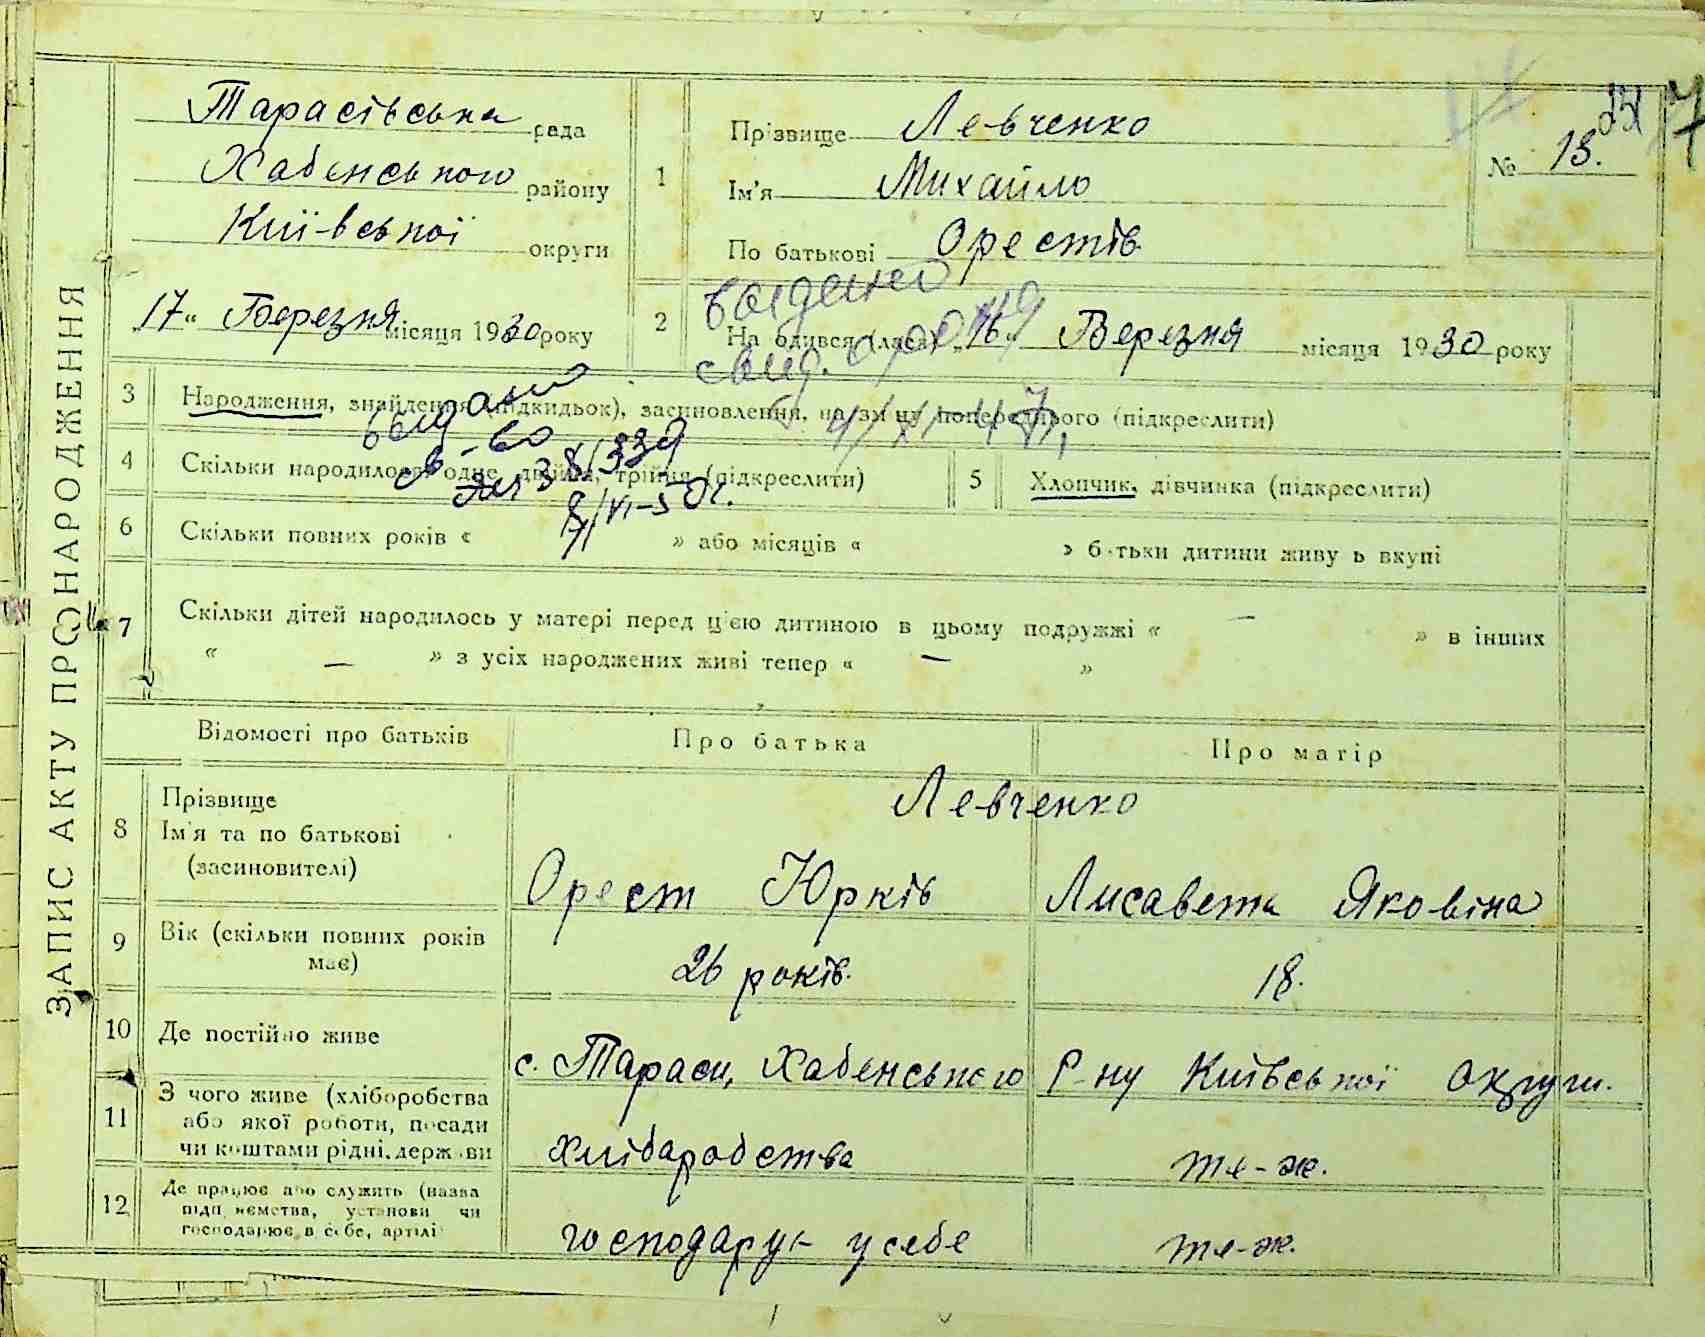 ЗАПИС АКТУ ПРО НАРОДЖЕННЯ
Тарасівська рада
Хабенського району
Київської округи
„17“ Березня місяця 1930 року
1
Прізвище Левченко
Ім'я Михайло
По батькові Орестів
№ 13.
2
На одився (лася) „16“ Березня місяця 1930 року
видано
свид.
3 Народження, знайдення (підкидьок), засиновлення, на зм ну попереднього (підкреслити)
видано
св-во
8/VI-50г.
4 Скільки народилося одне, двійня, трійня (підкреслити)
5 Хлопчик, дівчинка (підкреслити)
6 Скільки повних років « » або місяців « » б тьки дитини живу ь вкупі
7 Скільки дітей народилось у матері перед цією дитиною в цьому подружжі « — » в інших
« — » з усіх народжених живі тепер « — »
Відомості про батьків Про батька Про матір
8 Прізвище
Ім'я та по батькові
(засиновителі)
Левченко
Орест Юрків Лисавета Яковіна
9 Вік (скільки повних років
має)
26 років. 18.
10 Де постійно живе
с. Тараси, Хабенського Р-ну Київської округи.
11 З чого живе (хліборобства
або якої роботи, посади
чи коштами рідні, держ ви
хлібаробства те-ж.
12 Де працює або служить (назва
підп иємства, установи чи
господарює в себе, артілі
господарує у себе те-ж.